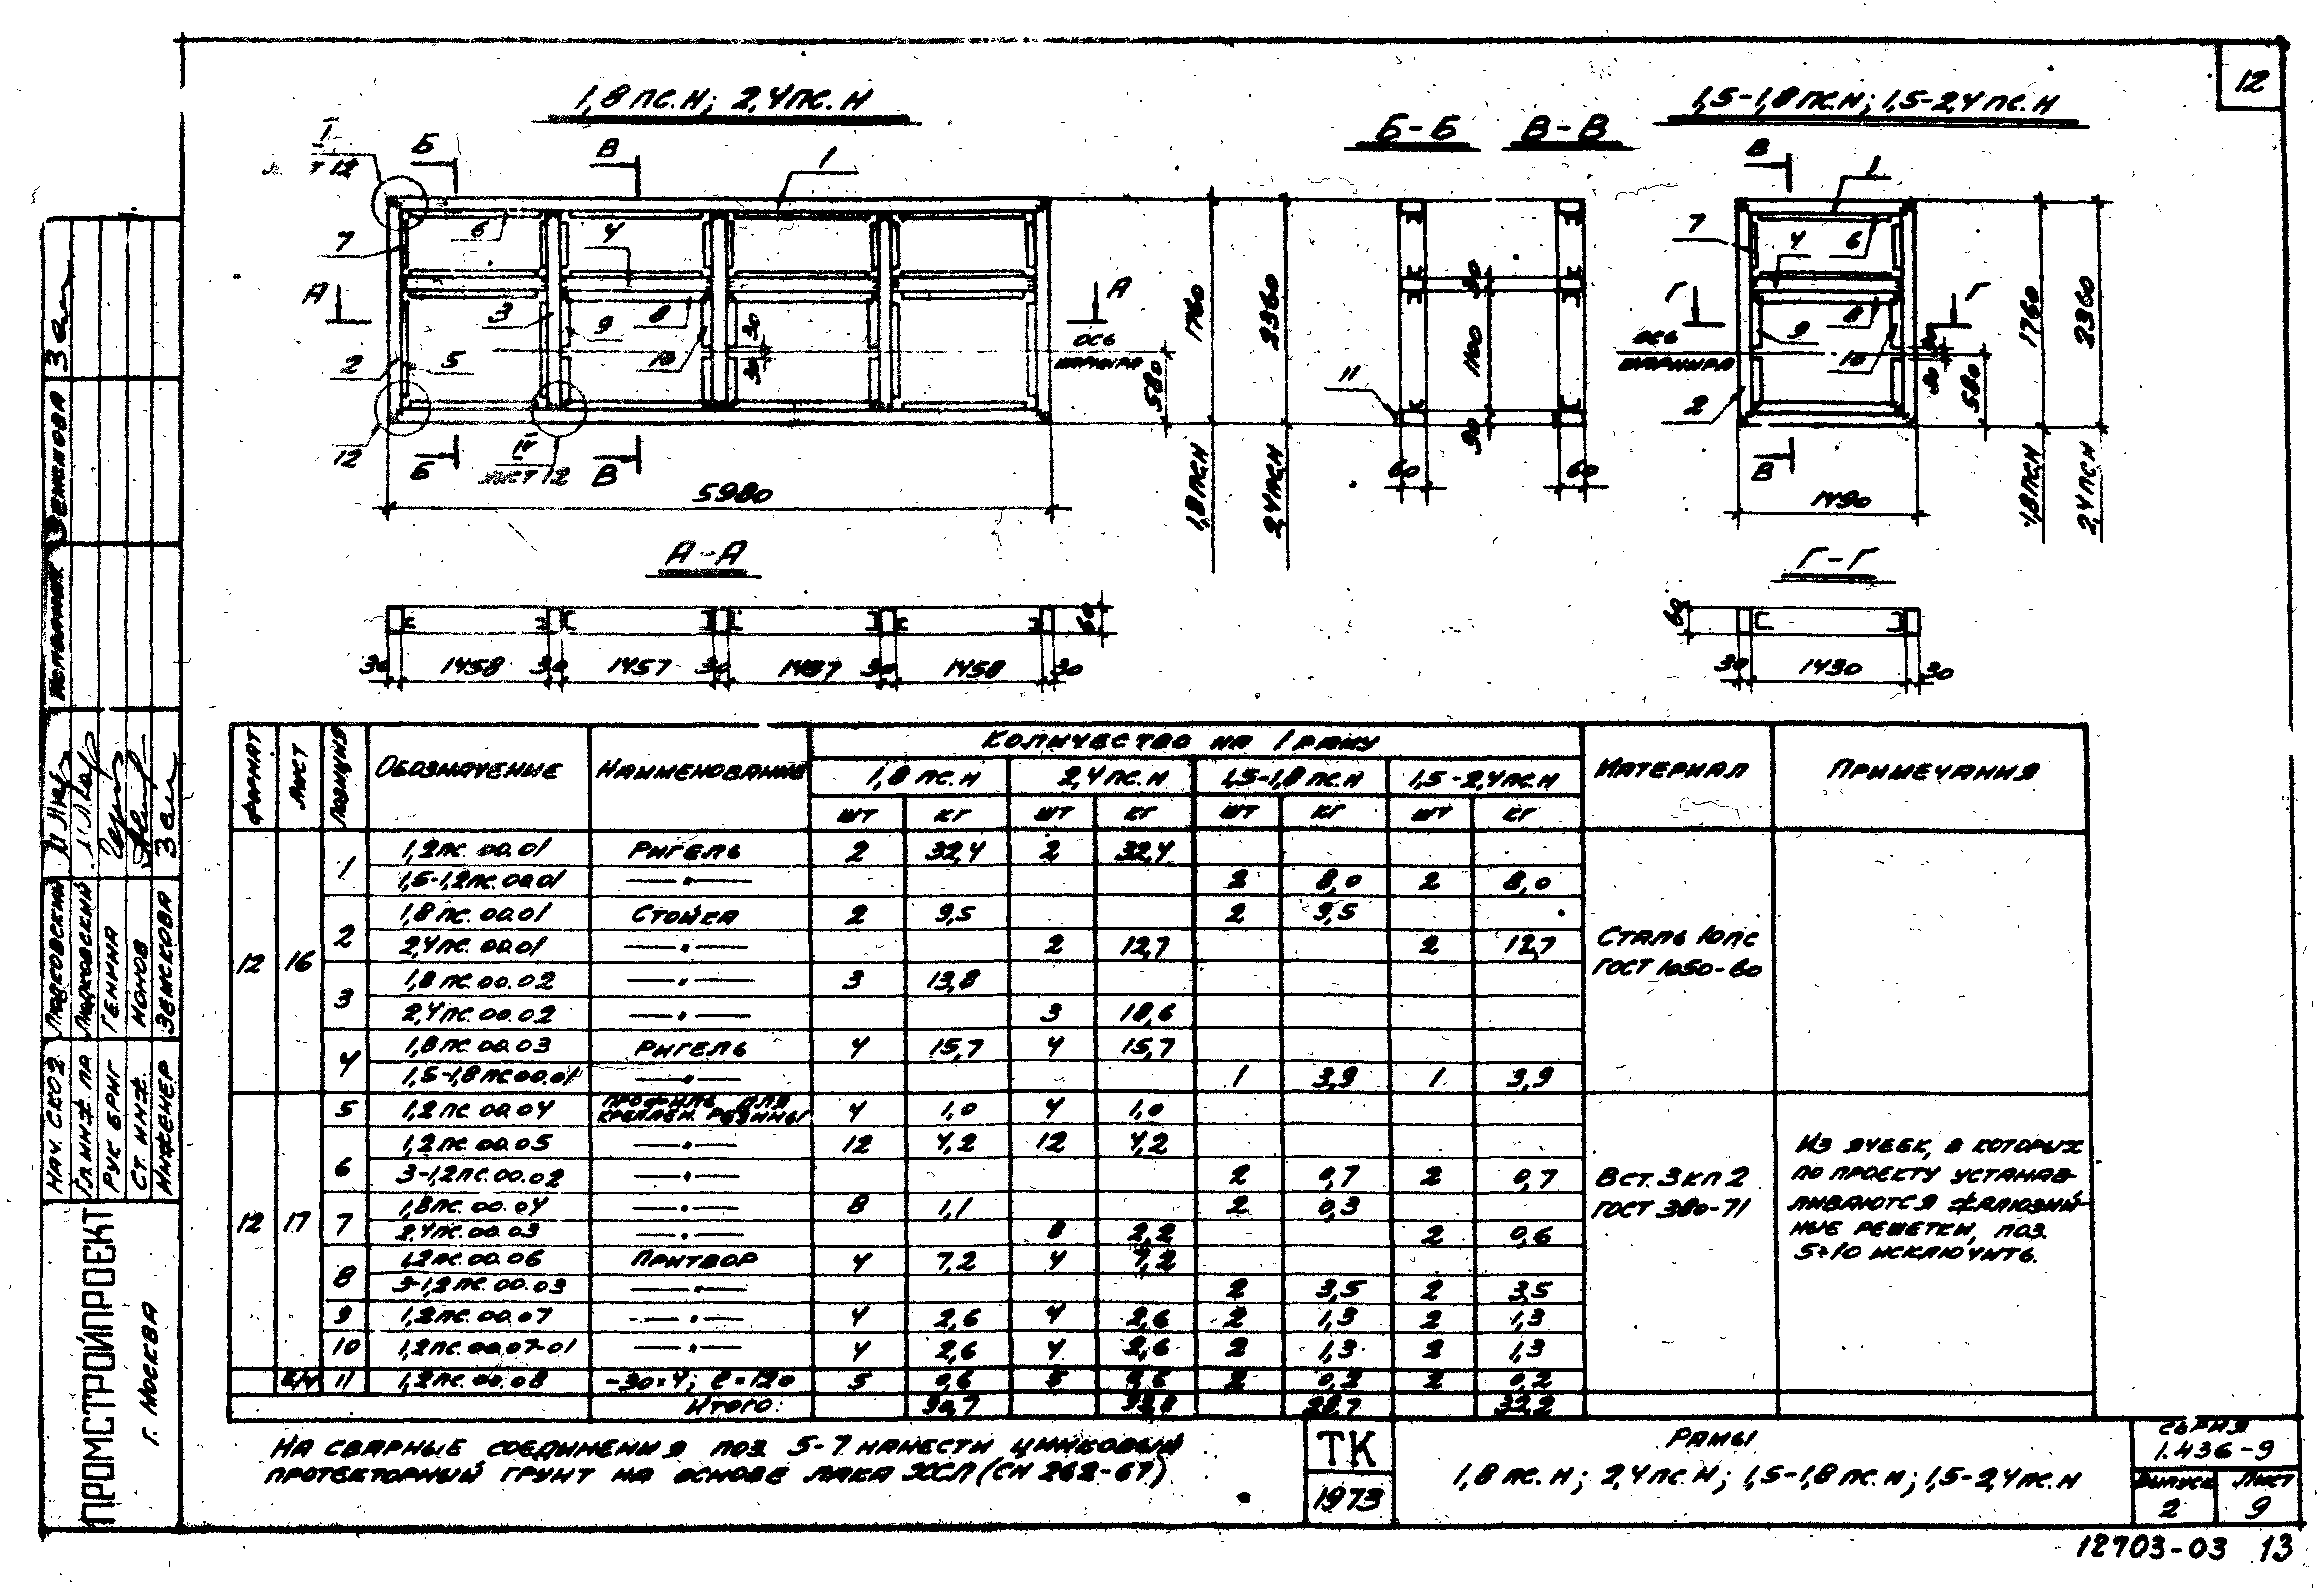 12
1,8 пс.н; 2,4 пс.н
Б-Б
В-В
1,5-1,8 пс.н; 1,5-2,4 пс.н
I
12
Б
В
1
6
4
7
А
А
3
9
8
30
2
5
10
30
ось
шарнира
580
12
Б
IV
лист 12
В
5980
1760
2360
1,8 пс.н
2,4 пс.н
30
1100
30
11
60
60
В
1
7
4
6
Г
Г
8
9
ось
шарнира
10
30
30
580
2
В
1490
1760
2360
1,8 пс.н
2,4 пс.н
А-А
60
30 1458 30 1457 30 1457 30 1458 30
Г-Г
60
30 1430 30
Формат Лист Позиция Обозначение Наименование Количество на 1 раму Материал Примечания
1,8 пс.н 2,4 пс.н 1,5-1,8 пс.н 1,5-2,4 пс.н
шт кг шт кг шт кг шт кг
12 16
1 1,2 пс.00.01 Ригель 2 32,4 2 32,4
1,5-1,2 пс.00.01 —"— 2 8,0 2 8,0
2 1,8 пс.00.01 Стойка 2 9,5 2 9,5
2,4 пс.00.01 —"— 2 12,7 2 12,7
3 1,8 пс.00.02 —"— 3 13,8
2,4 пс.00.02 —"— 3 18,6
4 1,8 пс.00.03 Ригель 4 15,7 4 15,7
1,5-1,8 пс.00.01 —"— 1 3,9 1 3,9
Сталь 10пс
ГОСТ 1050-60
12 17
5 1,2 пс.00.04 Профиль для креплен. резины 4 1,0 4 1,0
6 1,2 пс.00.05 —"— 12 4,2 12 4,2
3-1,2 пс.00.02 —"— 2 0,7 2 0,7
7 1,8 пс.00.04 —"— 8 1,1 2 0,3
2,4 пс.00.03 —"— 8 2,2 2 0,6
8 1,2 пс.00.06 Притвор 4 7,2 4 7,2
3-1,2 пс.00.03 —"— 2 3,5 2 3,5
9 1,2 пс.00.07 —"— 4 2,6 4 2,6 2 1,3 2 1,3
10 1,2 пс.00.07-01 —"— 4 2,6 4 2,6 2 1,3 2 1,3
Б/ч 11 1,2 пс.00.08 -30×4; ℓ=120 5 0,6 5 0,6 2 0,2 2 0,2
Итого: 90,7 28,7 32,2
В ст. 3 кп 2
ГОСТ 380-71
Из ячеек, в которых
по проекту устанав-
ливаются жалюзий-
ные решетки, поз.
5÷10 исключить.
На сварные соединения поз. 5-7 нанести цинковый
протекторный грунт на основе лака ХСЛ (СН 262-67)
ТК
1973
Рамы
1,8 пс.н; 2,4 пс.н; 1,5-1,8 пс.н; 1,5-2,4 пс.н
Серия
1.436-9
Выпуск Лист
2 9
12703-03 13
Нач. СКО2
Гл. инж. пр
Рук бриг Генина
Ст. инж.
Инженер Земскова
Исполнил Земскова
ПРОМСТРОЙПРОЕКТ
г. Москва